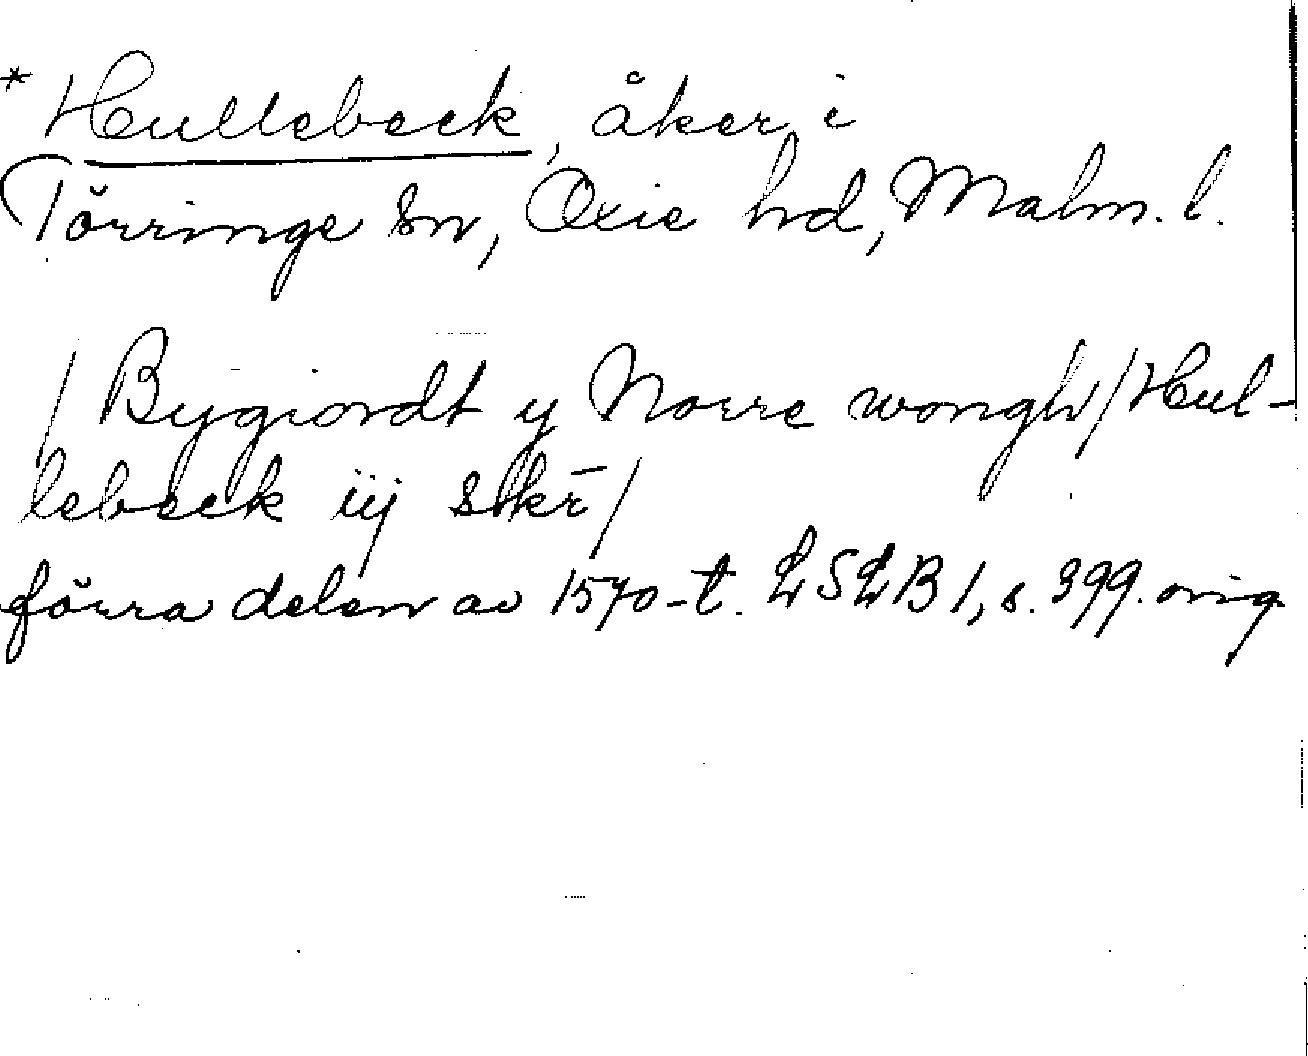 * Hullebeck, åker i
Törringe sn, Oxie hd, Malm. l.
/ Bygiordt y Norre wongh / Hul-
lebeck iij skr̄ /
förra delen av 1570-t. LSLB 1, s. 399. orig